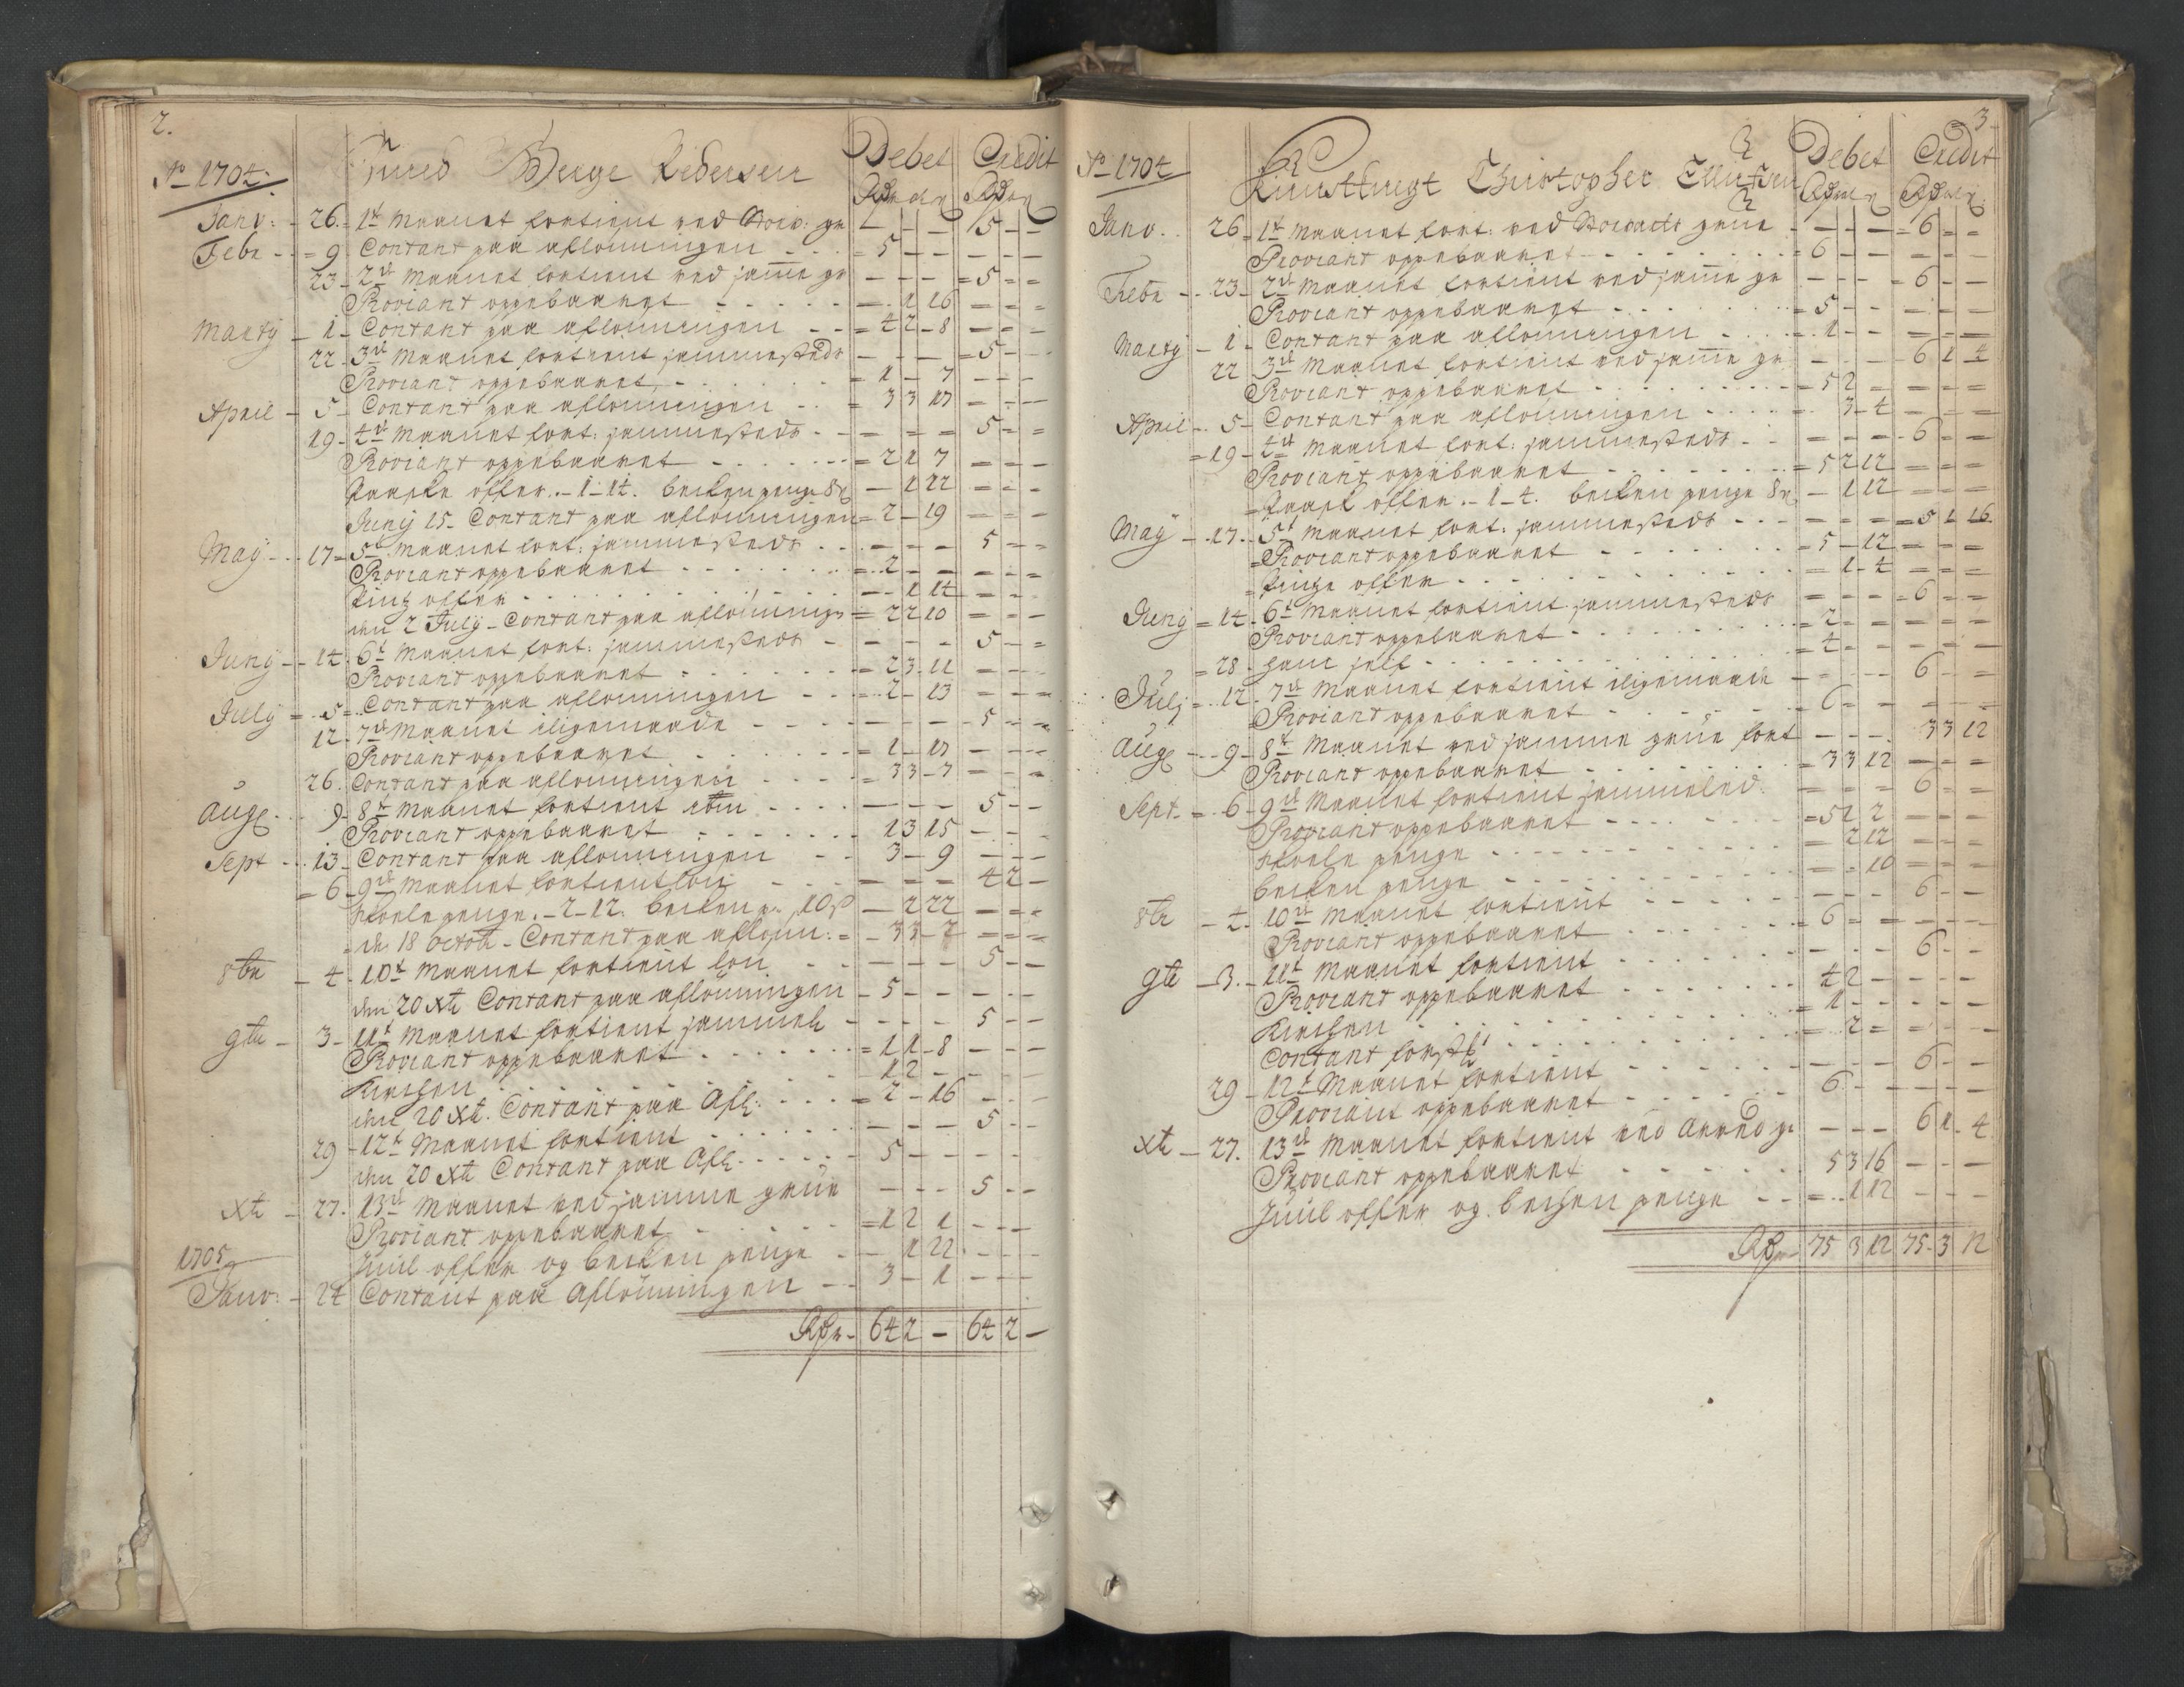 2.
Ao 1704. Jured Berge Pedersen Debet Credit
Janv: - 26. 1t Maanet fortient ved Norw: gr - - - 5 - -
Febr - 9 Contant paa aflönningen - 5 - - - - -
23 - 2d Maanet fortient ved samme gr - - - 5 - -
Proviant oppebaaret - 1 16 - - -
Marty - 1 - Contant paa aflönningen - 4 2 - 8 - - -
22 - 3d Maanet fortient sammesteds - - - 5 - -
Proviant oppebaaret - 1 - 7 - - -
April - 5 - Contant paa aflönningen - 3 3 17 - - -
19 - 4d Maanet fort: sammesteds - - - 5 - -
Proviant oppebaaret - 2 1 7 - - -
Paaske offer. - 1 - 14. becken penge 8 - 1 22 - - -
Junij 15 - Contant paa aflönningen - 2 - 19 - - -
Maij - 17 - 5t Maanet fort: sammesteds - - - 5 - -
Proviant oppebaaret - 2 - - - - -
Pintz offer - - 1 14 - - -
den 2 July - Contant paa aflönninge - 2 2 10 - - -
Junij - 14 - 6t Maanet fort: sammesteds - - - 5 - -
Proviant oppebaaret - 2 3 - 11 - - -
July - 5 - Contant paa aflönningen - 2 - 13 - - -
12 - 7d Maanet iligemaade - - - 5 - -
Proviant oppebaaret - 1 - 17 - - -
26. Contant paa aflönningen - 3 3 - 7 - - -
Aug - 9 - 8t Maanet fortient - - - 5 - -
Proviant oppebaaret - 1 3 15 - - -
Sept - 13 - Contant paa aflönningen - 3 - 9 - - -
6 - 9d Maanet fortient lön - - - 4 2 -
Skole penge. - 2 - 12. becken p. 10 - 2 22 - - -
d. 18 Octob - Contant paa aflönn: - 3 3 - 2 - - -
8br - 4 - 10t Maanet fortient lön - - - 5 - -
den 20 Xb Contant paa aflönningen - 5 - - - - -
9br - 3 - 11t Maanet fortient sammele - - - 5 - -
Proviant oppebaaret - 1 1 - 8 - - -
Kirchen - 1 2 - - - -
den 20 Xb. Contant paa Afl: - 2 - 16 - - -
29 - 12t Maanet fortient - - - 5 - -
den 20 Xb Contant paa Afl: - 5 - - - - -
Xb - 27. 13d Maanet ved samme grue - - - 5 - -
Proviant oppebaaret - 1 2 1 - - -
Juul offer og becken penge - 1 22 - - -
1705
Janv: - 24 Contant paa Aflönningen - 3 - 1 - - -
64 2 - 64 2 -
3
Ao 1704 Kunstknegt Christopher Ellertsen Debet Credit
Janv. 26 - 1t Maanet fort: ved Norwads grue - - - 6 - -
Proviant oppebaaret - 6 - - - - -
Febr - 23 - 2d Maanet fortient ved samme gr - - - 6 - -
Proviant oppebaaret - 5 - - - - -
Marty - 1 - Contant paa aflönningen - 1 - - - - -
22 3d Maanet fortient ved samme gr - - - 6 1 4
Proviant oppebaaret - 5 2 - - - -
April - 5 - Contant paa aflönningen - 3 - 4 - - -
19 - 4d Maanet fort: sammesteds - - - 6 - -
Proviant oppebaaret - 5 2 12 - - -
Paask offer. - 1 - 4. becken penge 8 - 1 12 - - -
Maij - 17 - 5t Maanet fort: sammesteds - - - 5 1 16
Proviant oppebaaret - 5 - 12 - - -
Pintze offer - 1 - 4 - - -
Junij - 14 - 6t Maanet fortient sammesteds - - - 6 - -
Proviant oppebaaret - 2 - - - - -
28 - ham self - 4 - - - - -
Julj - 12 - 7d Maanet fortient iligemaade - - - 6 - -
Proviant oppebaaret - 6 - - - - -
Aug - 9 - 8t Maanet ved samme grue fort - - - 3 3 12
Proviant oppebaaret - 3 3 12 - - -
Sept. - 6 - 9d Maanet fortient sammeled - - - 6 - -
Proviant oppebaaret - 5 2 2 - - -
Skole penge - 2 12 - - -
Becken penge - - 10 - - -
8br - 4 - 10d Maanet fortient - - - 6 - -
Proviant oppebaaret - 6 - - - - -
9br - 3. - 11t Maanet fortient - - - 6 - -
Proviant oppebaaret - 4 2 - - - -
Kirchen - 1 - - - - -
Contant - 2 - - - -
29 - 12t Maanet fortient - - - 6 - -
Proviant oppebaaret - 6 - - - - -
Xb - 27. 13d Maanet fortient ved Arved gr - - - 6 1 - 4
Proviant oppebaaret - 5 3 16 - - -
Juul offer og becken penge - 1 12 - - -
75 3 12 75 - 3 12